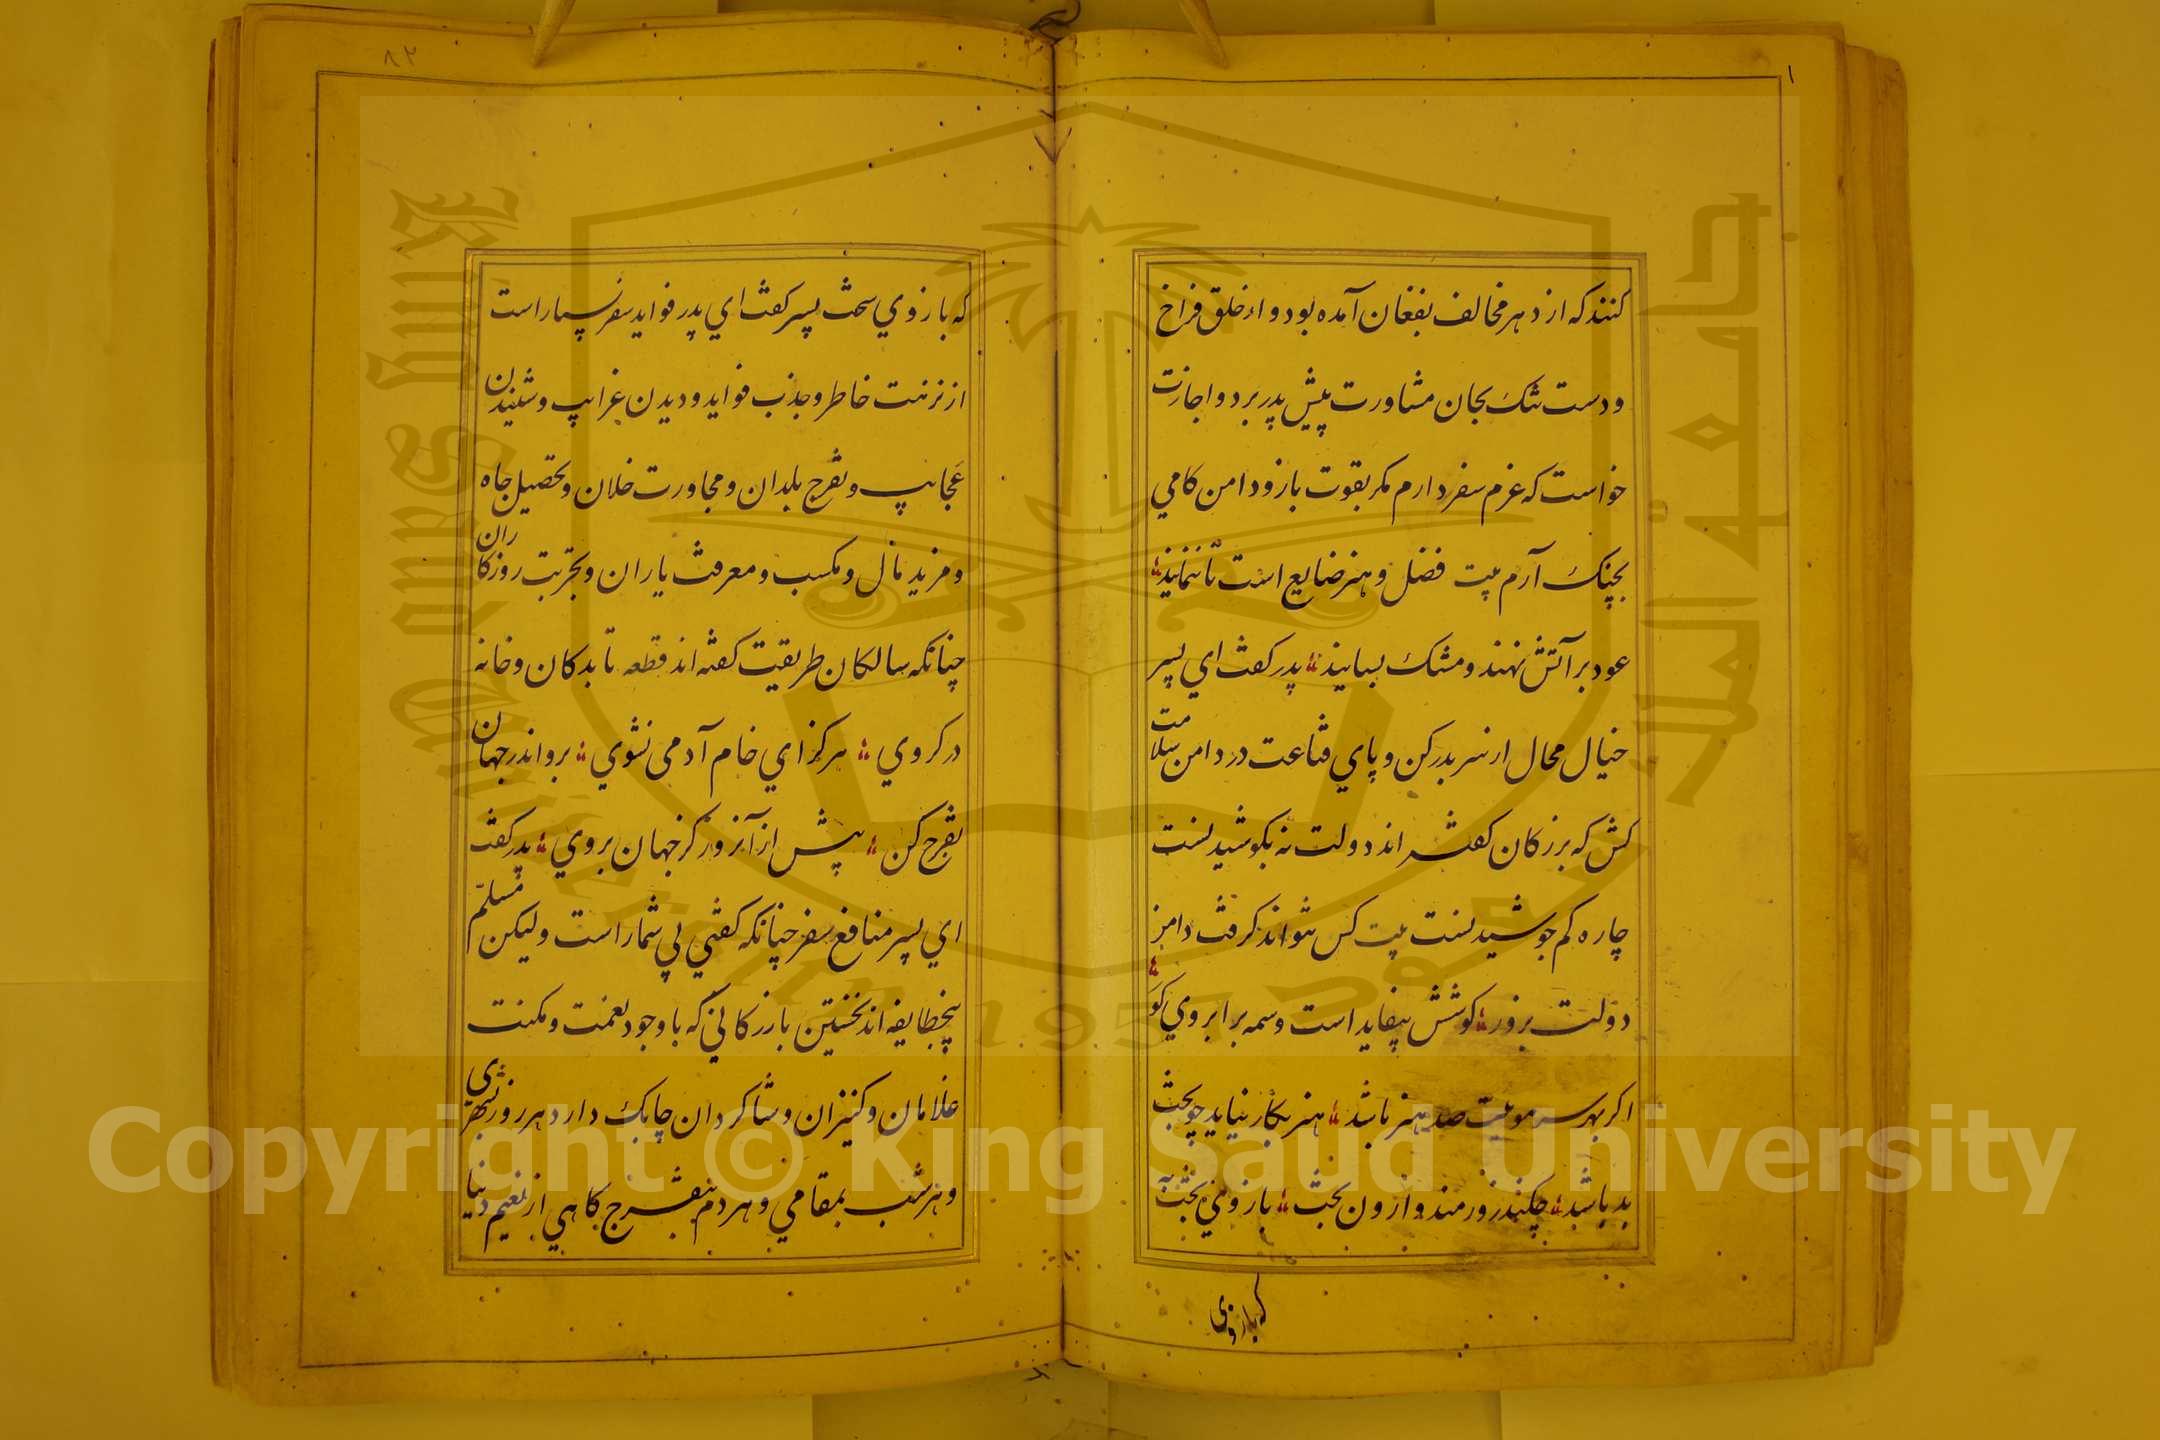 ۱
کنند که از دهر مخالف بفغان آمده بود و از خلق فراخ
و دست تنك بجان مشاورت پیش پدر برد و اجازت
خواست که عزم سفر دارم مکر بقوت بازو دامن کامي
بچنك آرم بیت فضل و هنر ضایع است تا ننمایند
عود بر آتش نهند و مشك بسایند پدر کفت اي پسر
خیال محال از سر بدر کن و پاي قناعت در دامن سلامت
کش که بزرکان کفته اند دولت نه بکوشیدنست
چاره کم جوشیدنست بیت کس نتواند کرفت دامن
دولت بزور کوشش بیفایده است وسمه بر ابروي کور
اکر بهر سر مویت صد هنر باشد هنر بکار نیاید چو بخت
بد باشد چکند زورمند وازون بخت بازوي بخت به
که بازوی
۸۲
که بازوي سخت پسر کفت اي پدر فواید سفر بسیار است
از نزهت خاطر و جذب فواید و دیدن غرایب و شنیدن
عجایب و تفرج بلدان و مجاورت خلان و تحصیل جاه
و مزید مال و مکسب و معرفت یاران و تجربت روزکاران
چنانکه سالکان طریقیت کفته اند قطعه تا بدکان و خانه
در کروي هرکز اي خام آدمی نشوي برو اندر جهان
تفرج کن پیش از آنروز کز جهان بروي پدر کفت
اي پسر منافع سفر چنانکه کفتي بي شمار است ولیکن مسلم
پنج طایفه اند نخستین بازرکاني که با وجود نعمت و مکنت
غلامان و کنیزان و شاکردان چابك دارد هر روز بشهری
و هر شب بمقامي و هر دم بتفرج کاهي از نعیم دنیا
King Saud University 1957
جامعة الملك سعود
Copyright © King Saud University